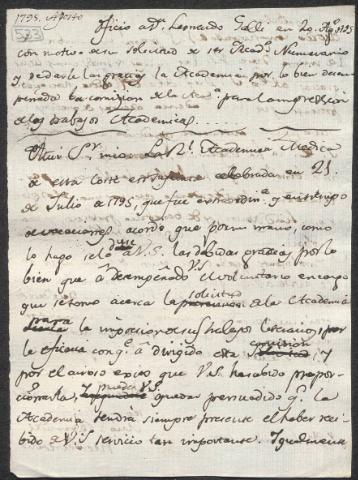 1795. Agosto
583
Oficio a Dn. Leonardo Galli en 20. Agto. 1795
con motivo de su solicitud de ser Acadco. Numerario
y se darle las gracias la Academia por lo bien desem
peñado la comision de la Aca. para la impresion
de los trabajos Academicos.
Muy Sr. mio: La Rl. Academia Medica
de esta Corte en Junta celebrada en 21
de Julio de 1795, que fue extraordina. y en tiempo
de vacaciones acordó que por mi mano, como
lo hago se le diese a V.S. las debidas gracias por lo
bien que a desempeñado V.S. el voluntario encargo
que se tomó acerca la solicitud de la Academia
para la impresion de sus trabajos literarios, por
la eficacia con q. a dirigido esta comision, y
por el airoso exito que V.S. ha sabido propor-
cionarla, y puede V.S. quedar persuadido q. la
Academia tendrá siempre presente el haber reci-
bido a V.S. servicio tan importante. Igualmente